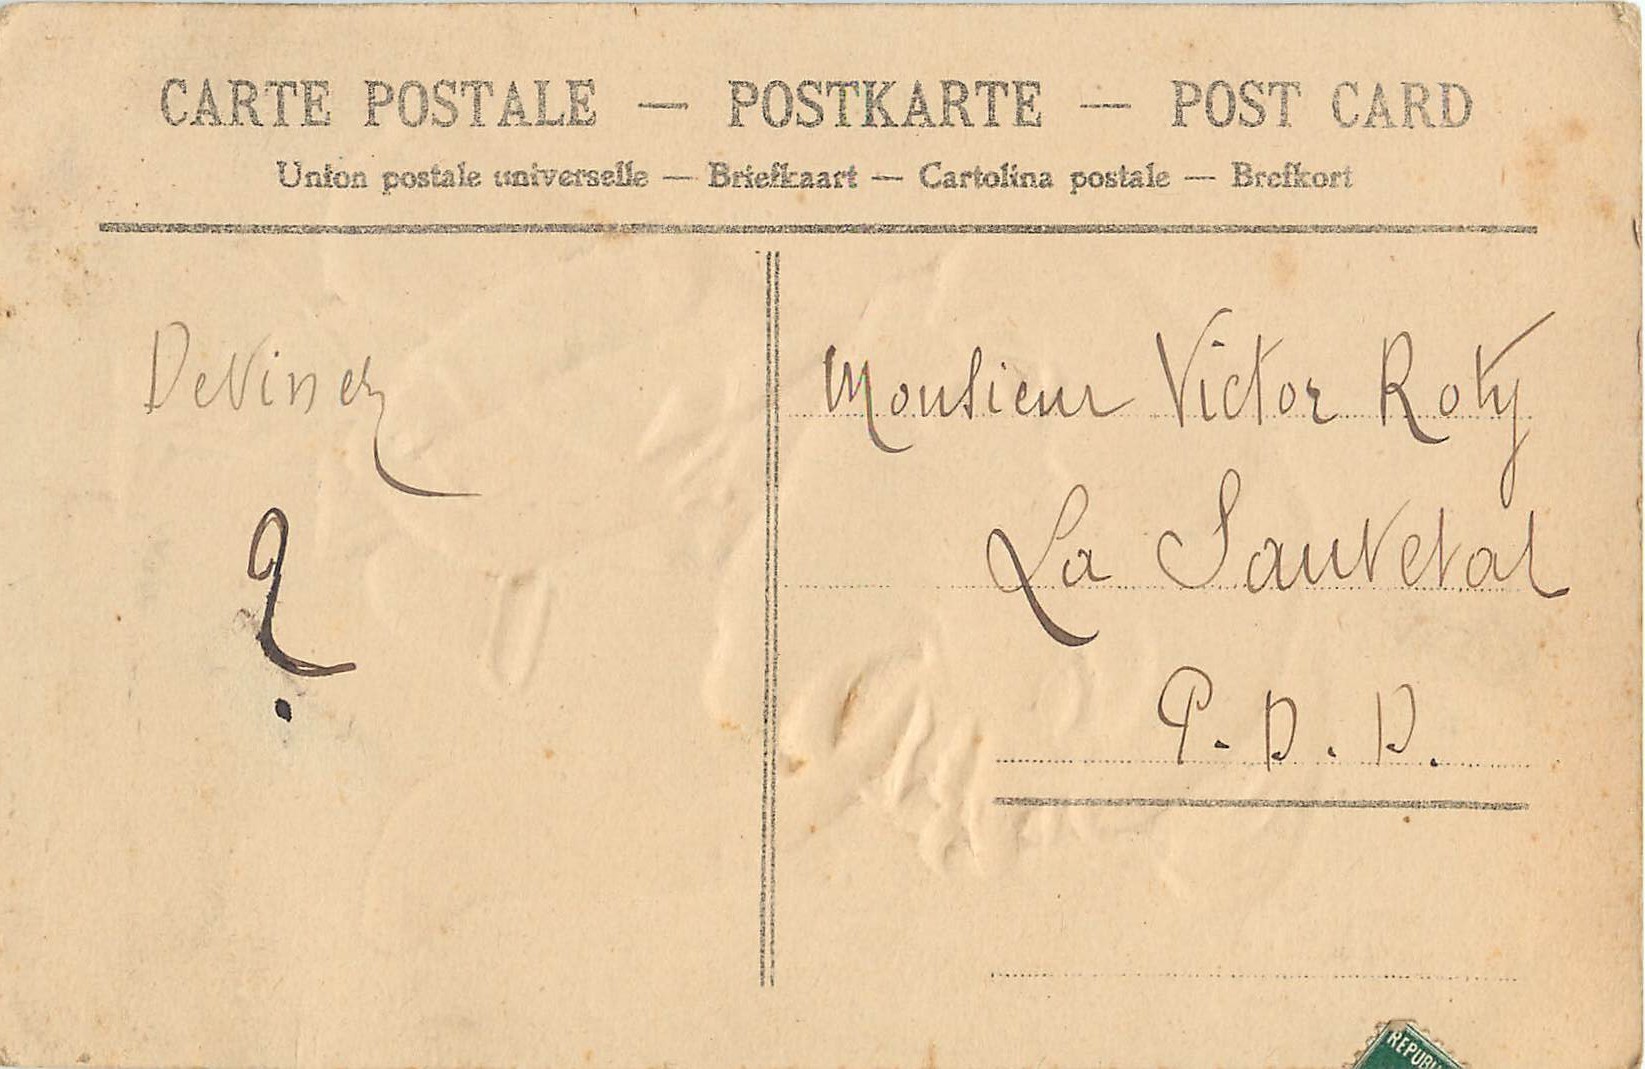 CARTE POSTALE — POSTKARTE — POST CARD
Union postale universelle — Briefkaart — Cartolina postale — Brefkort
Devinez
?
Monsieur Victor Roty
La Sauvetat
P. D. D.
REPUBL